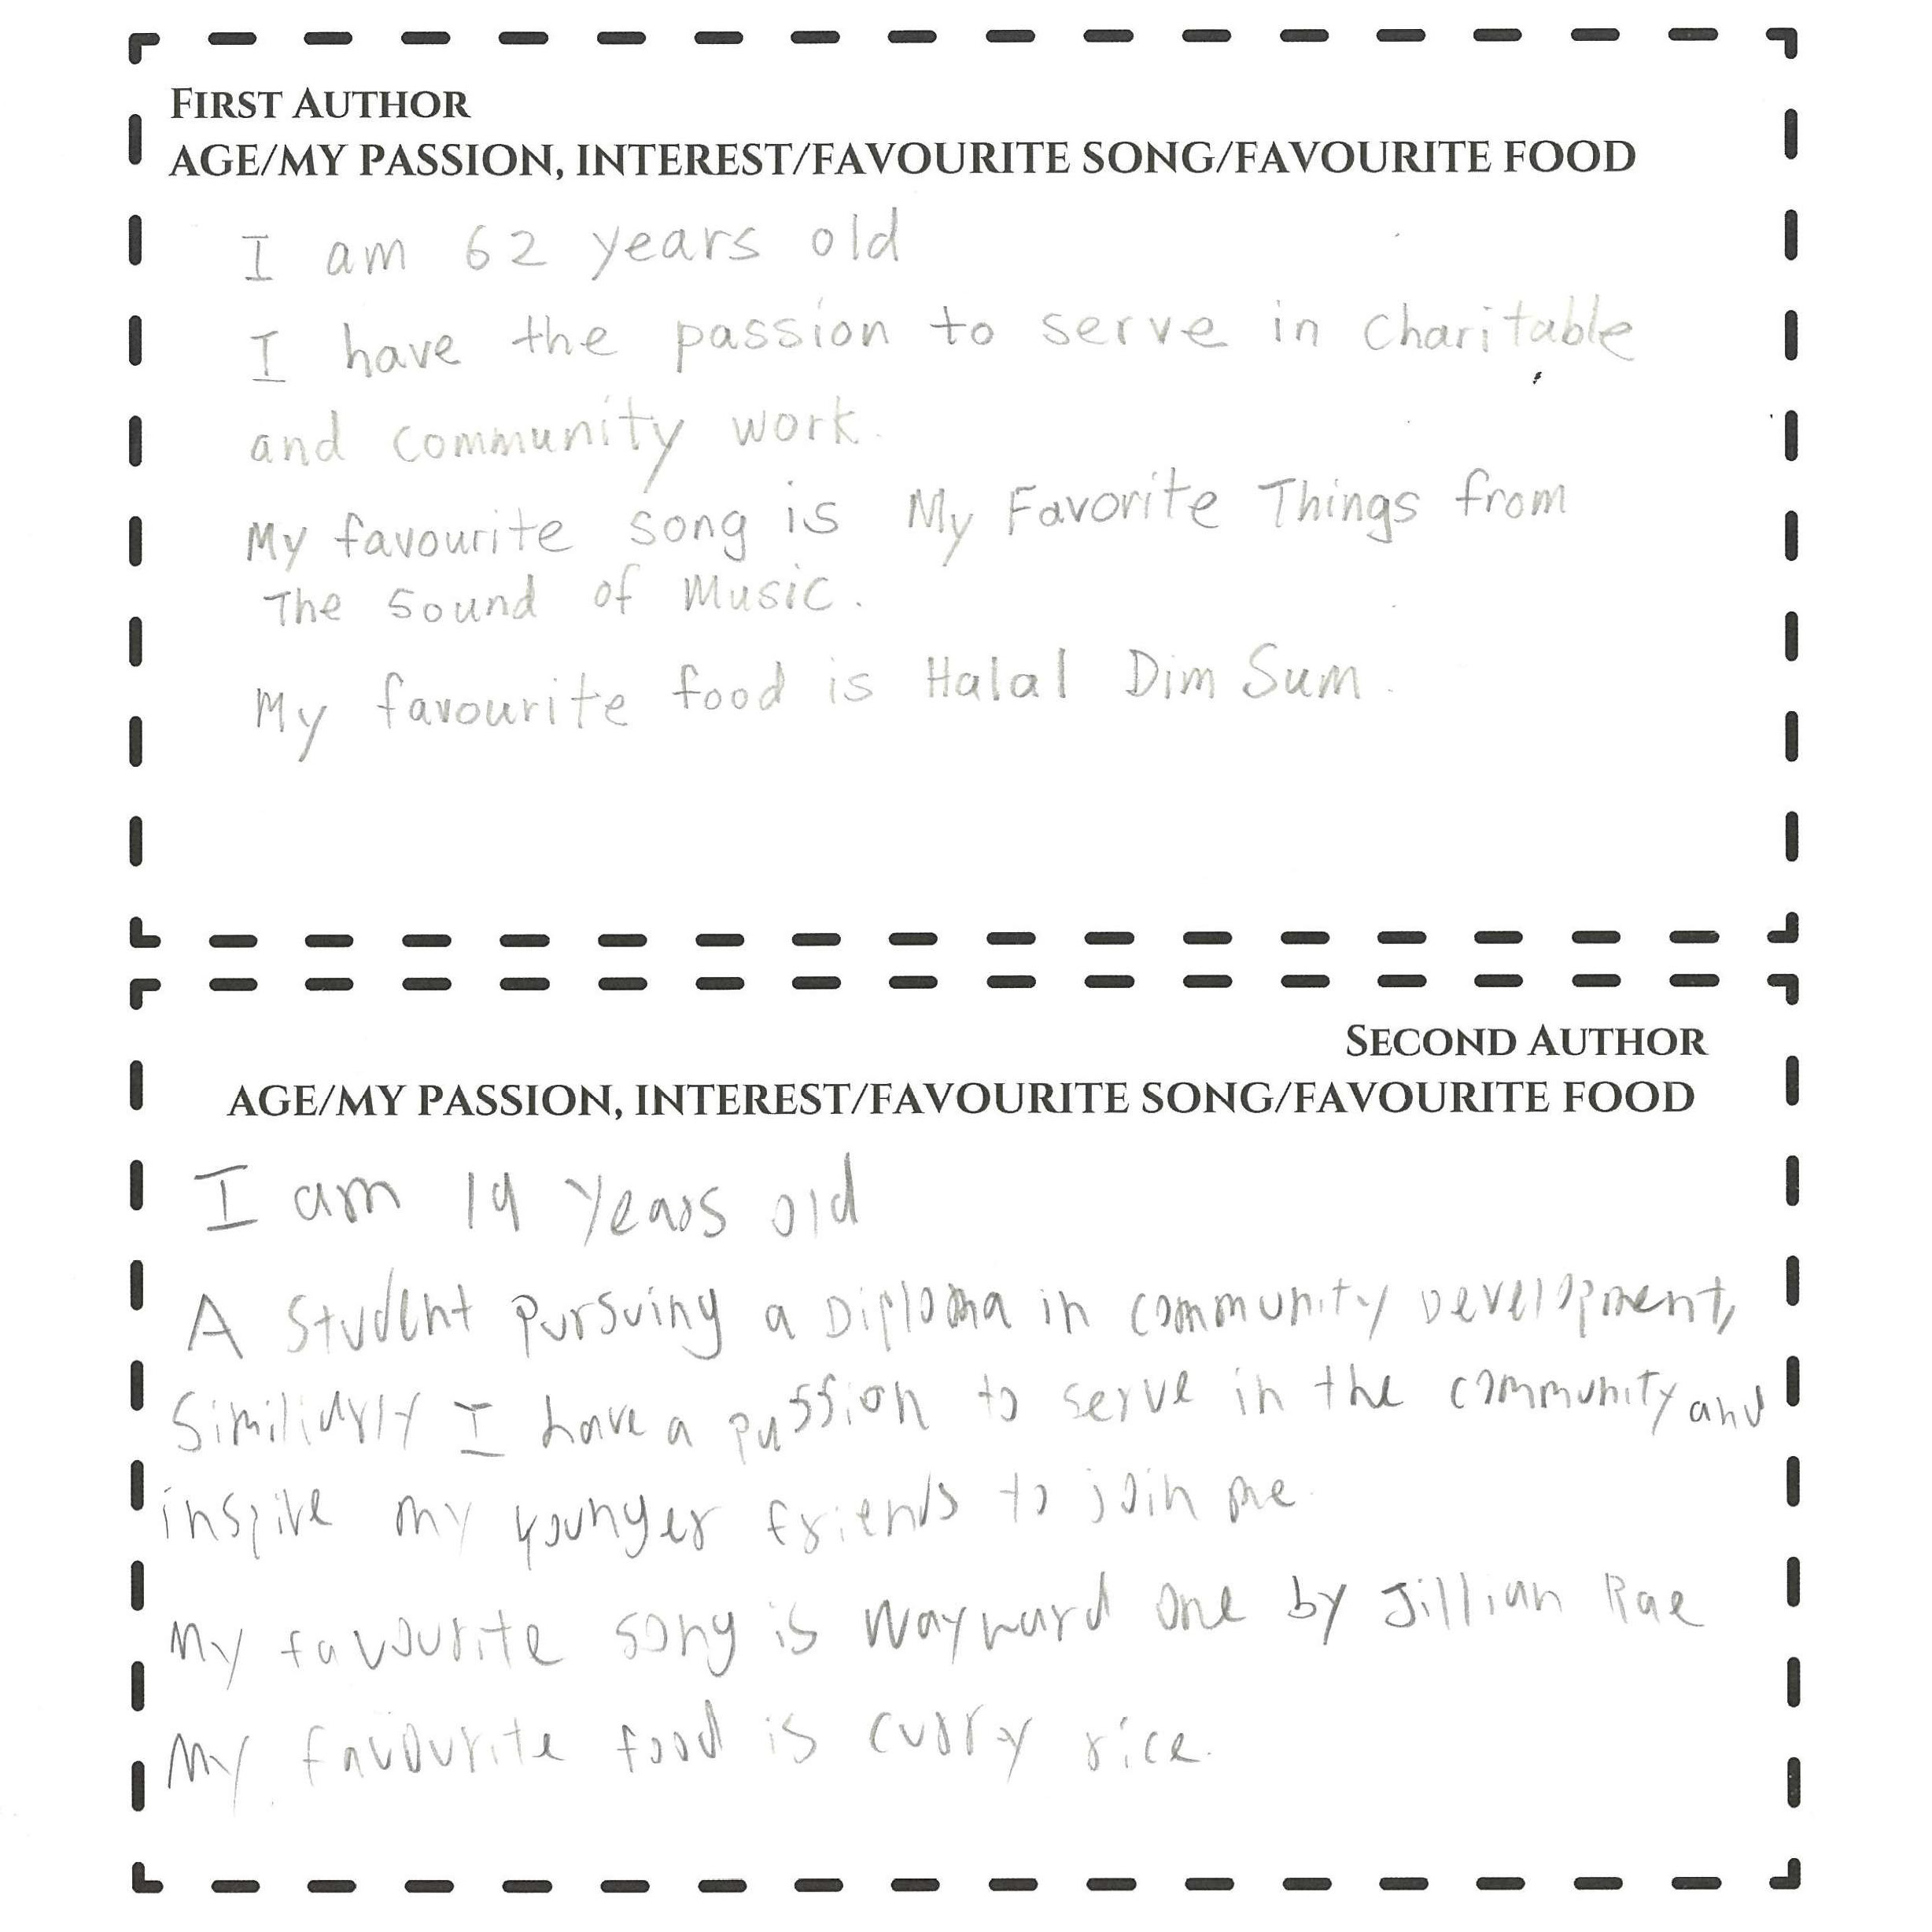 FIRST AUTHOR
AGE/MY PASSION, INTEREST/FAVOURITE SONG/FAVOURITE FOOD
I am 62 years old
I have the passion to serve in charitable
and community work.
My favourite song is My Favorite Things from
The Sound of Music.
My favourite food is Halal Dim Sum.
SECOND AUTHOR
AGE/MY PASSION, INTEREST/FAVOURITE SONG/FAVOURITE FOOD
I am 19 years old
A Student pursuing a Diploma in community Development,
Similiarly I have a passion to serve in the community and
inspire my younger friends to join me.
My favourite song is Wayward One by Jillian Rae
My favourite food is curry rice.